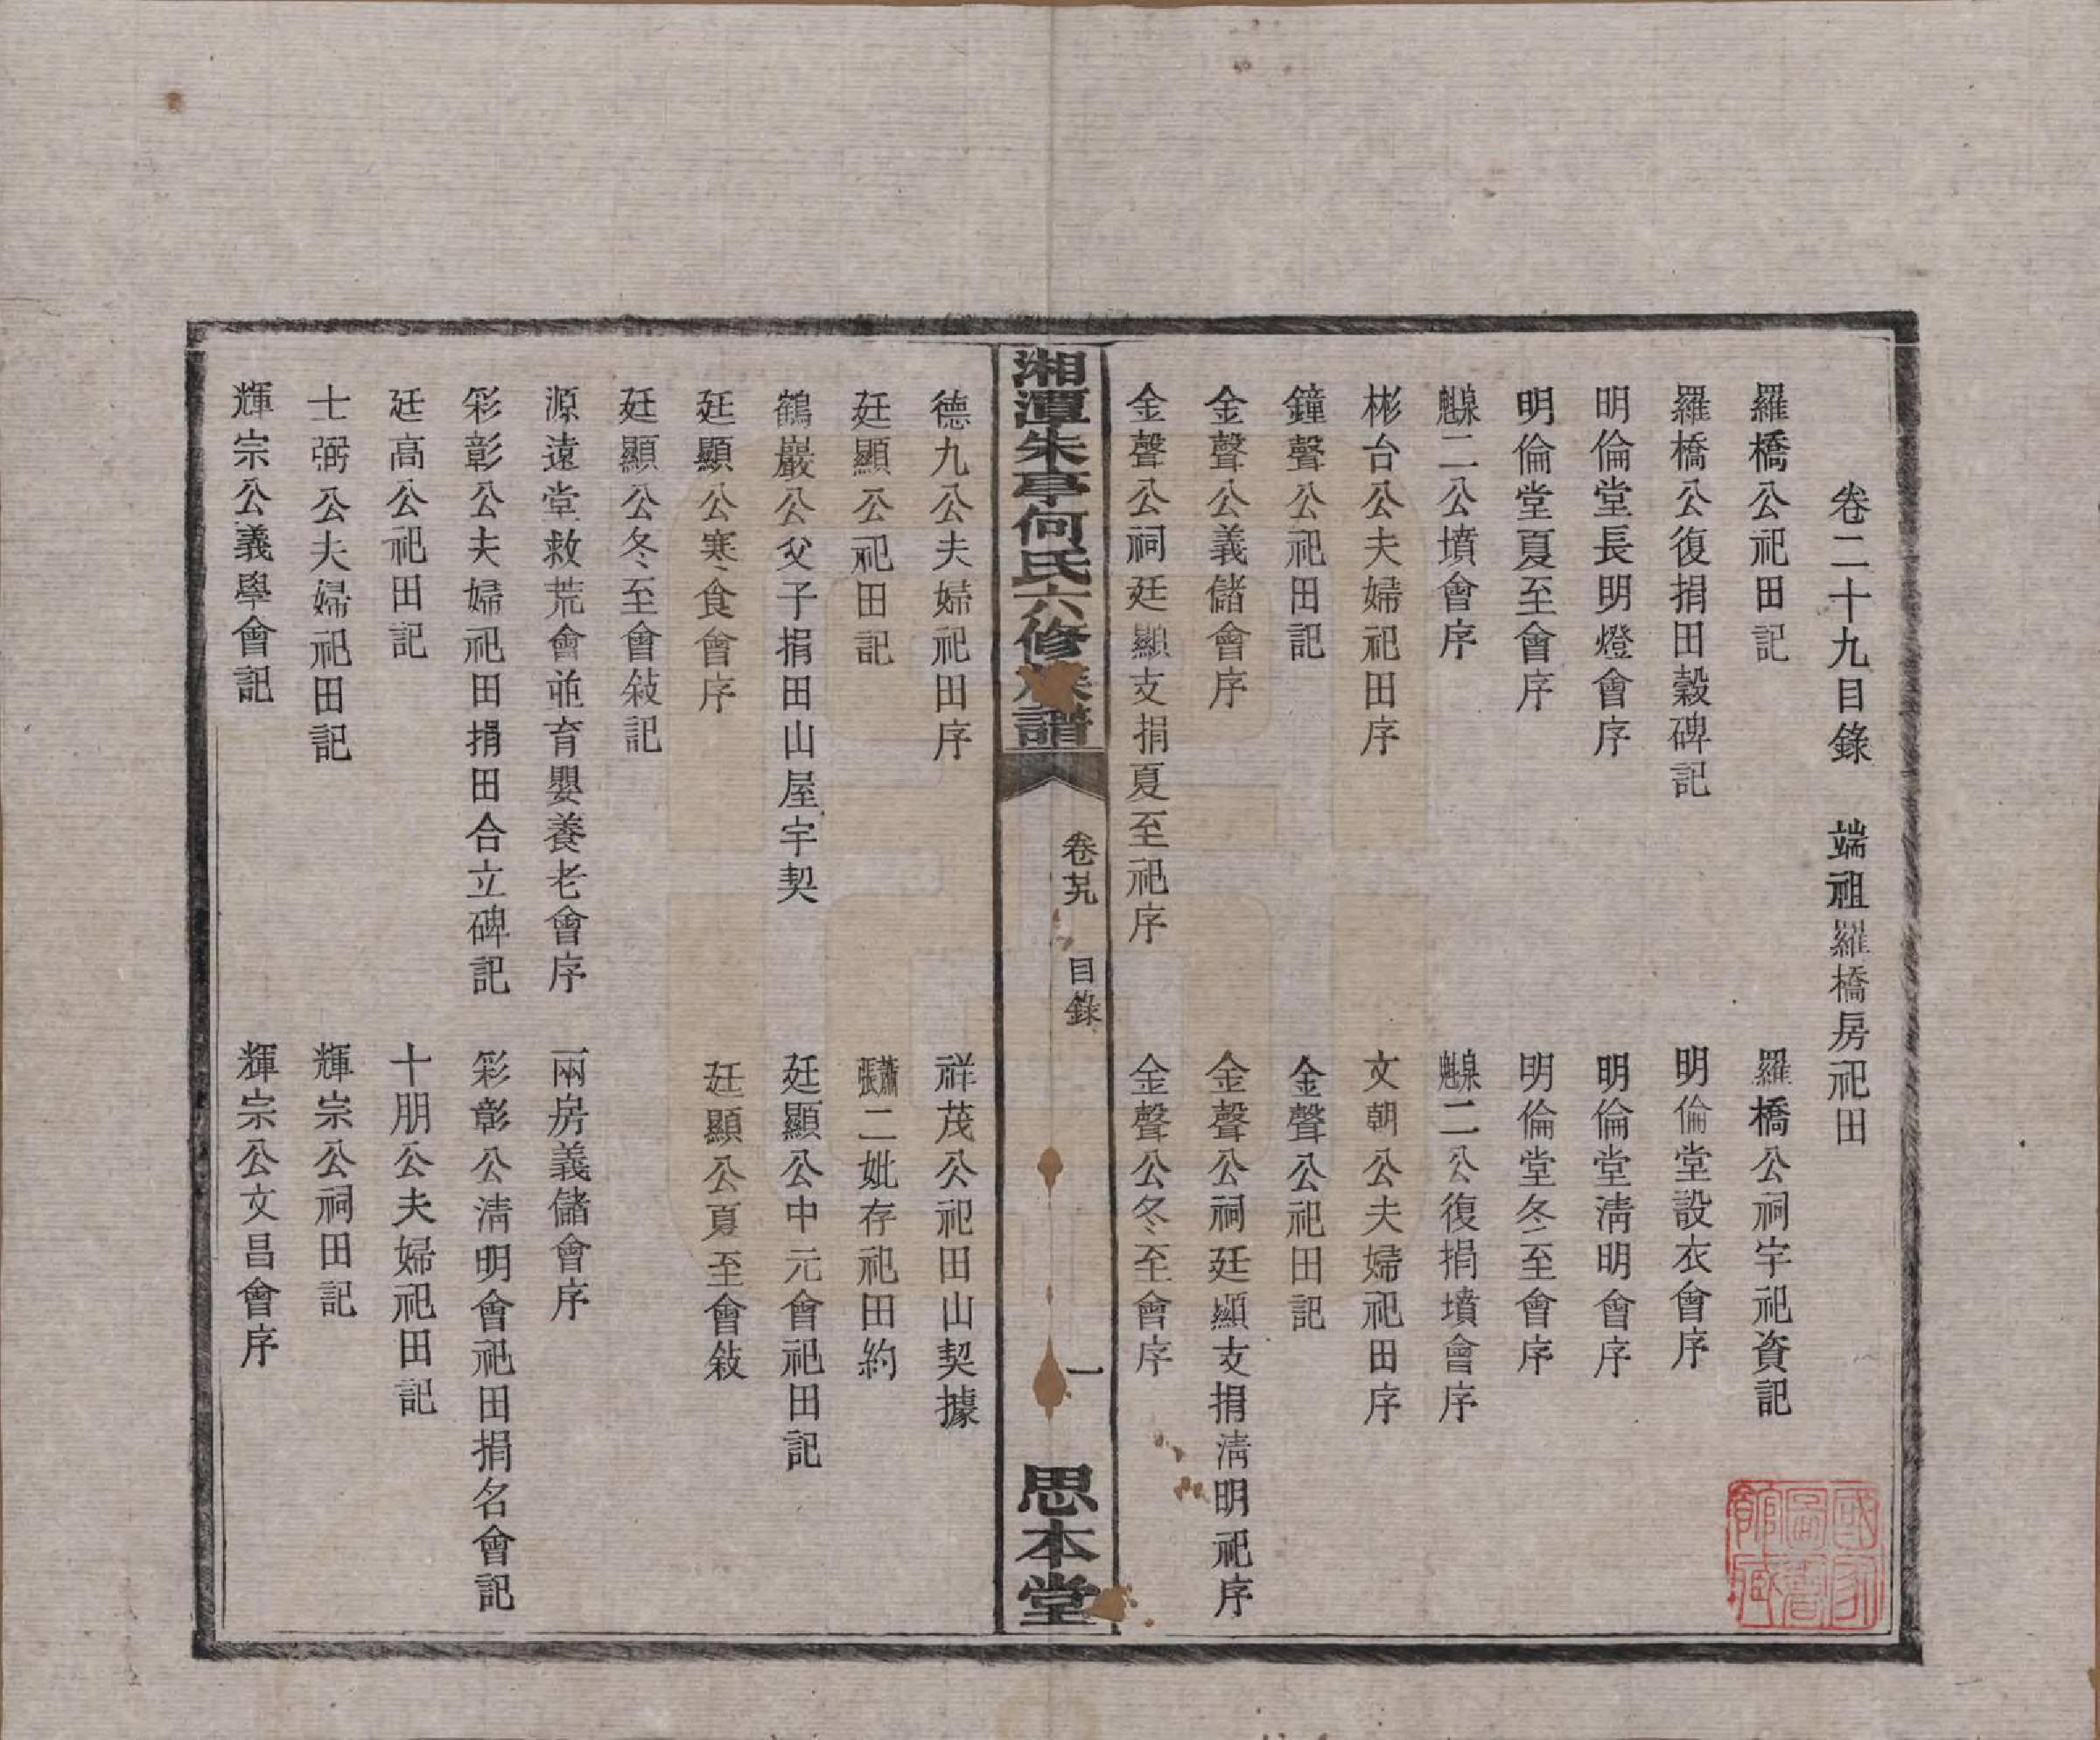 卷二十九目錄　端祖羅橋房祀田
羅橋公祀田記　羅橋公祠宇祀資記
羅橋公復捐田穀碑記　明倫堂設衣會序
明倫堂長明燈會序　明倫堂淸明會序
明倫堂夏至會序　明倫堂冬至會序
魁泉二公墳會序　魁泉二公復捐墳會序
彬台公夫婦祀田序　文朝公夫婦祀田序
鐘聲公祀田記　金聲公祀田記
金聲公義儲會序　金聲公祠廷顯支捐淸明祀序
金聲公祠廷顯支捐夏至祀序　金聲公冬至會序
湘潭朱亭何氏六修族譜　卷廿九　目錄　一　思本堂
德九公夫婦祀田序　祥茂公祀田山契據
廷顯公祀田記　張蕭二妣存祀田約
鶴巖公父子捐田山屋宇契　廷顯公中元會祀田記
廷顯公寒食會序　廷顯公夏至會敍
廷顯公冬至會敍記
源遠堂救荒會並育嬰養老會序　兩房義儲會序
彩彰公夫婦祀田捐田合立碑記　彩彰公淸明會祀田捐名會記
廷高公祀田記　十朋公夫婦祀田記
士弼公夫婦祀田記　輝宗公祠田記
輝宗公義學會記　輝宗公文昌會序
國家圖書館藏